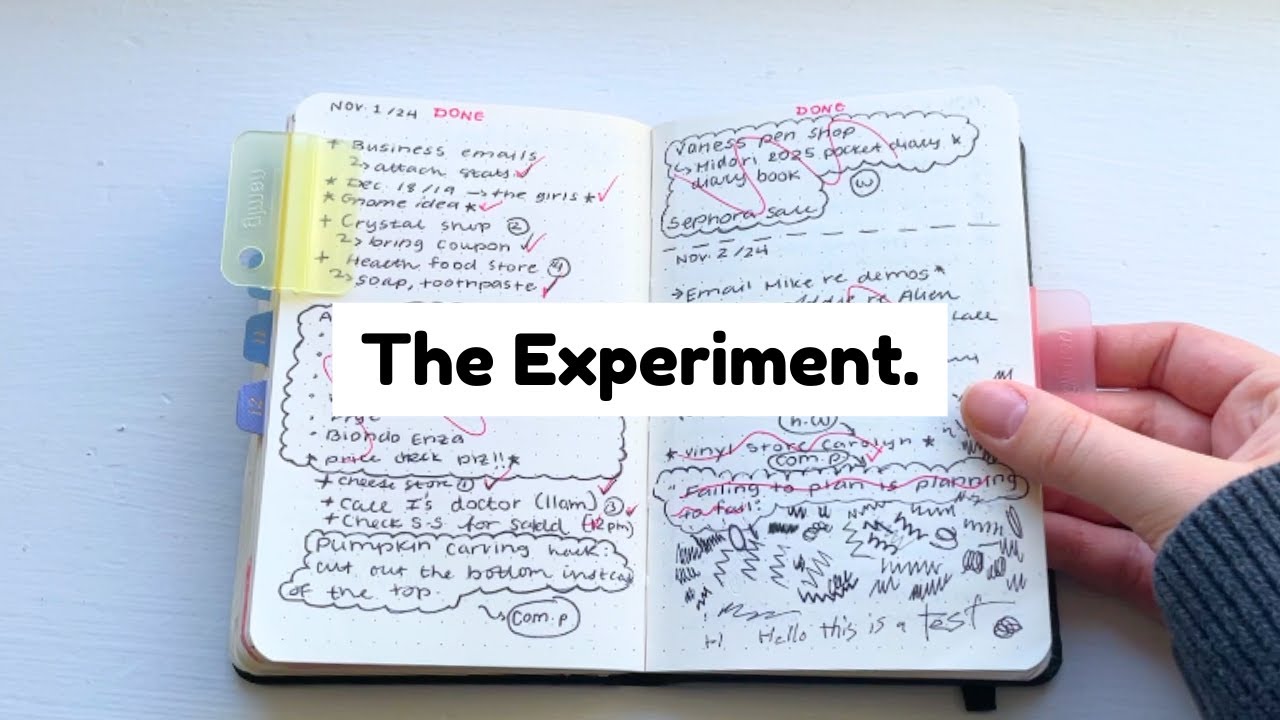 NOV. 1/24 DONE
+ Business emails
↳ attach stats ✓
* Dec. 18/19 → the girls * ✓
* Gnome idea * ✓
+ Crystal shop ②
↳ bring coupon ✓
+ Health food store ④
↳ soap, toothpaste ✓
A
Biondo Enza
* price check piz!! *
+ cheese store ① ✓
+ Call I's doctor (11am) ③ ✓
+ Check S.S for (12pm)
Pumpkin carving hack:
cut out the bottom instead
of the top.
com.p
DONE
Vaness pen shop
↳ Midori 2025 pocket diary *
diary book
w
Sephora sale
NOV. 2/24
→ Email Mike re demos *
re Alien
The Experiment.
n.w
* vinyl store Carolyn *
com.p
"Failing to plan is planning
to fail"
Hello this is a test
memo
11
12